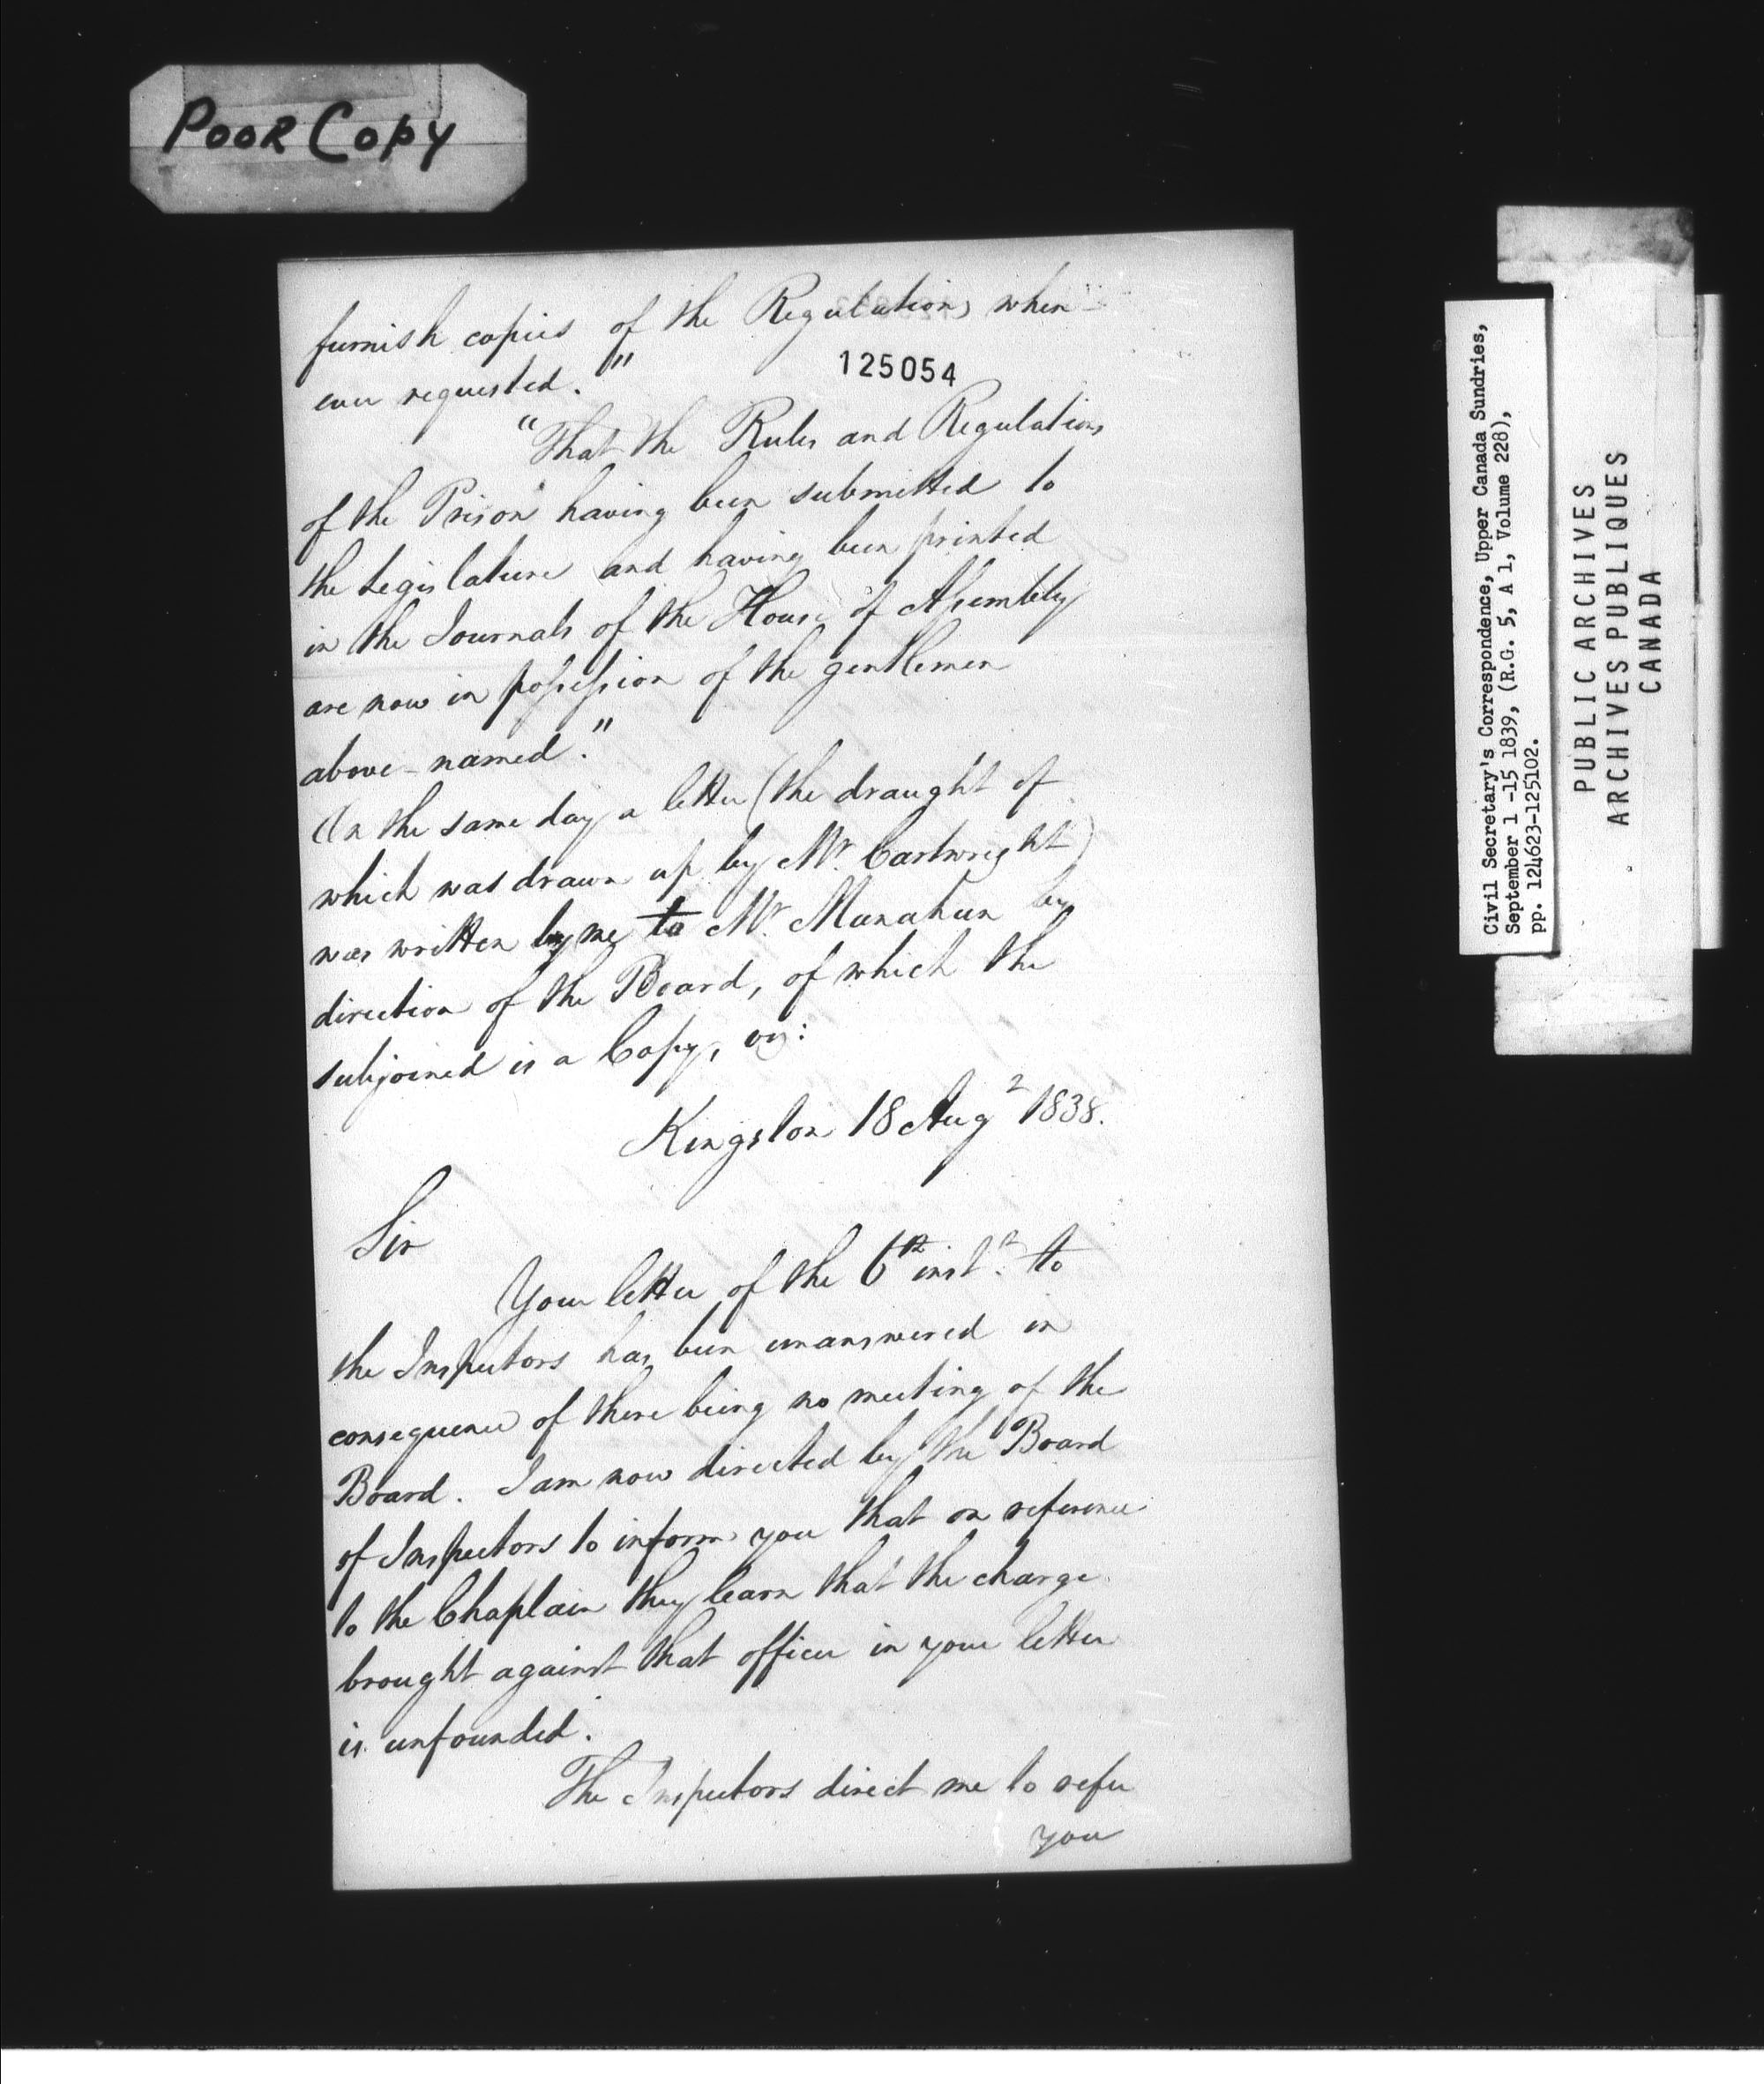 Poor Copy
furnish copies of the Regulations when-
ever requested."
125054
"That the Rules and Regulations
of the Prison having been submitted to
the Legislature and having been printed
in the Journals of the House of Assembly
are now in possession of the gentlemen
above-named."
On the same day a letter (the draught of
which was drawn up by Mr. Cartwright)
was written by me to Mr. Manahan by
direction of the Board, of which the
subjoined is a Copy, viz:
Kingston 18 Augt 1838.
Sir
Your letter of the 6th inst. to
the Inspectors has been unanswered in
consequence of there being no meeting of the
Board. I am now directed by the Board
of Inspectors to inform you that on reference
to the Chaplain they learn that the charge
brought against that officer in your letter
is unfounded.
The Inspectors direct me to refer
you
Civil Secretary's Correspondence, Upper Canada Sundries,
September 1 -15 1839, (R.G. 5, A 1, Volume 228),
pp. 124623-125102.
PUBLIC ARCHIVES
ARCHIVES PUBLIQUES
CANADA